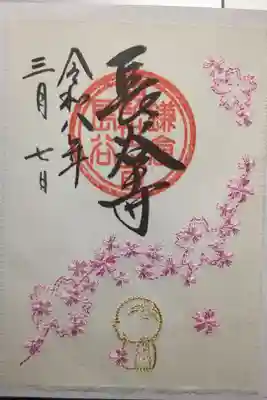 長谷寺
鎌倉
長谷
令和八年
三月 七日